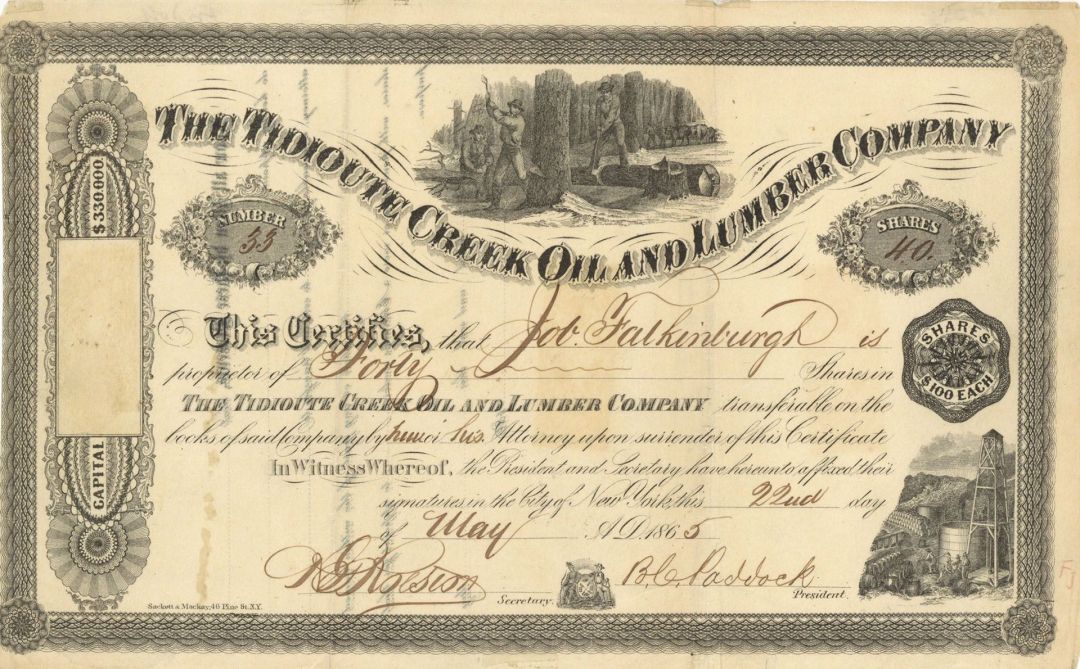 THE TIDIOUTE CREEK OIL AND LUMBER COMPANY
NUMBER
33
SHARES
40.
CAPITAL $330.000.
This Certifies, that Job. Falkinburgh is
proprietor of Forty Shares in
THE TIDIOUTE CREEK OIL AND LUMBER COMPANY transferable on the
books of said Company by him or his Attorney upon surrender of this Certificate
In Witness Whereof, the President and Secretary have hereunto affixed their
signatures in the City of New York, this 22nd day
of May A.D. 1865
SHARES
$100 EACH
Secretary.
B. C. Paddock
President.
Sackett & Mackay, 46 Pine St. N.Y.